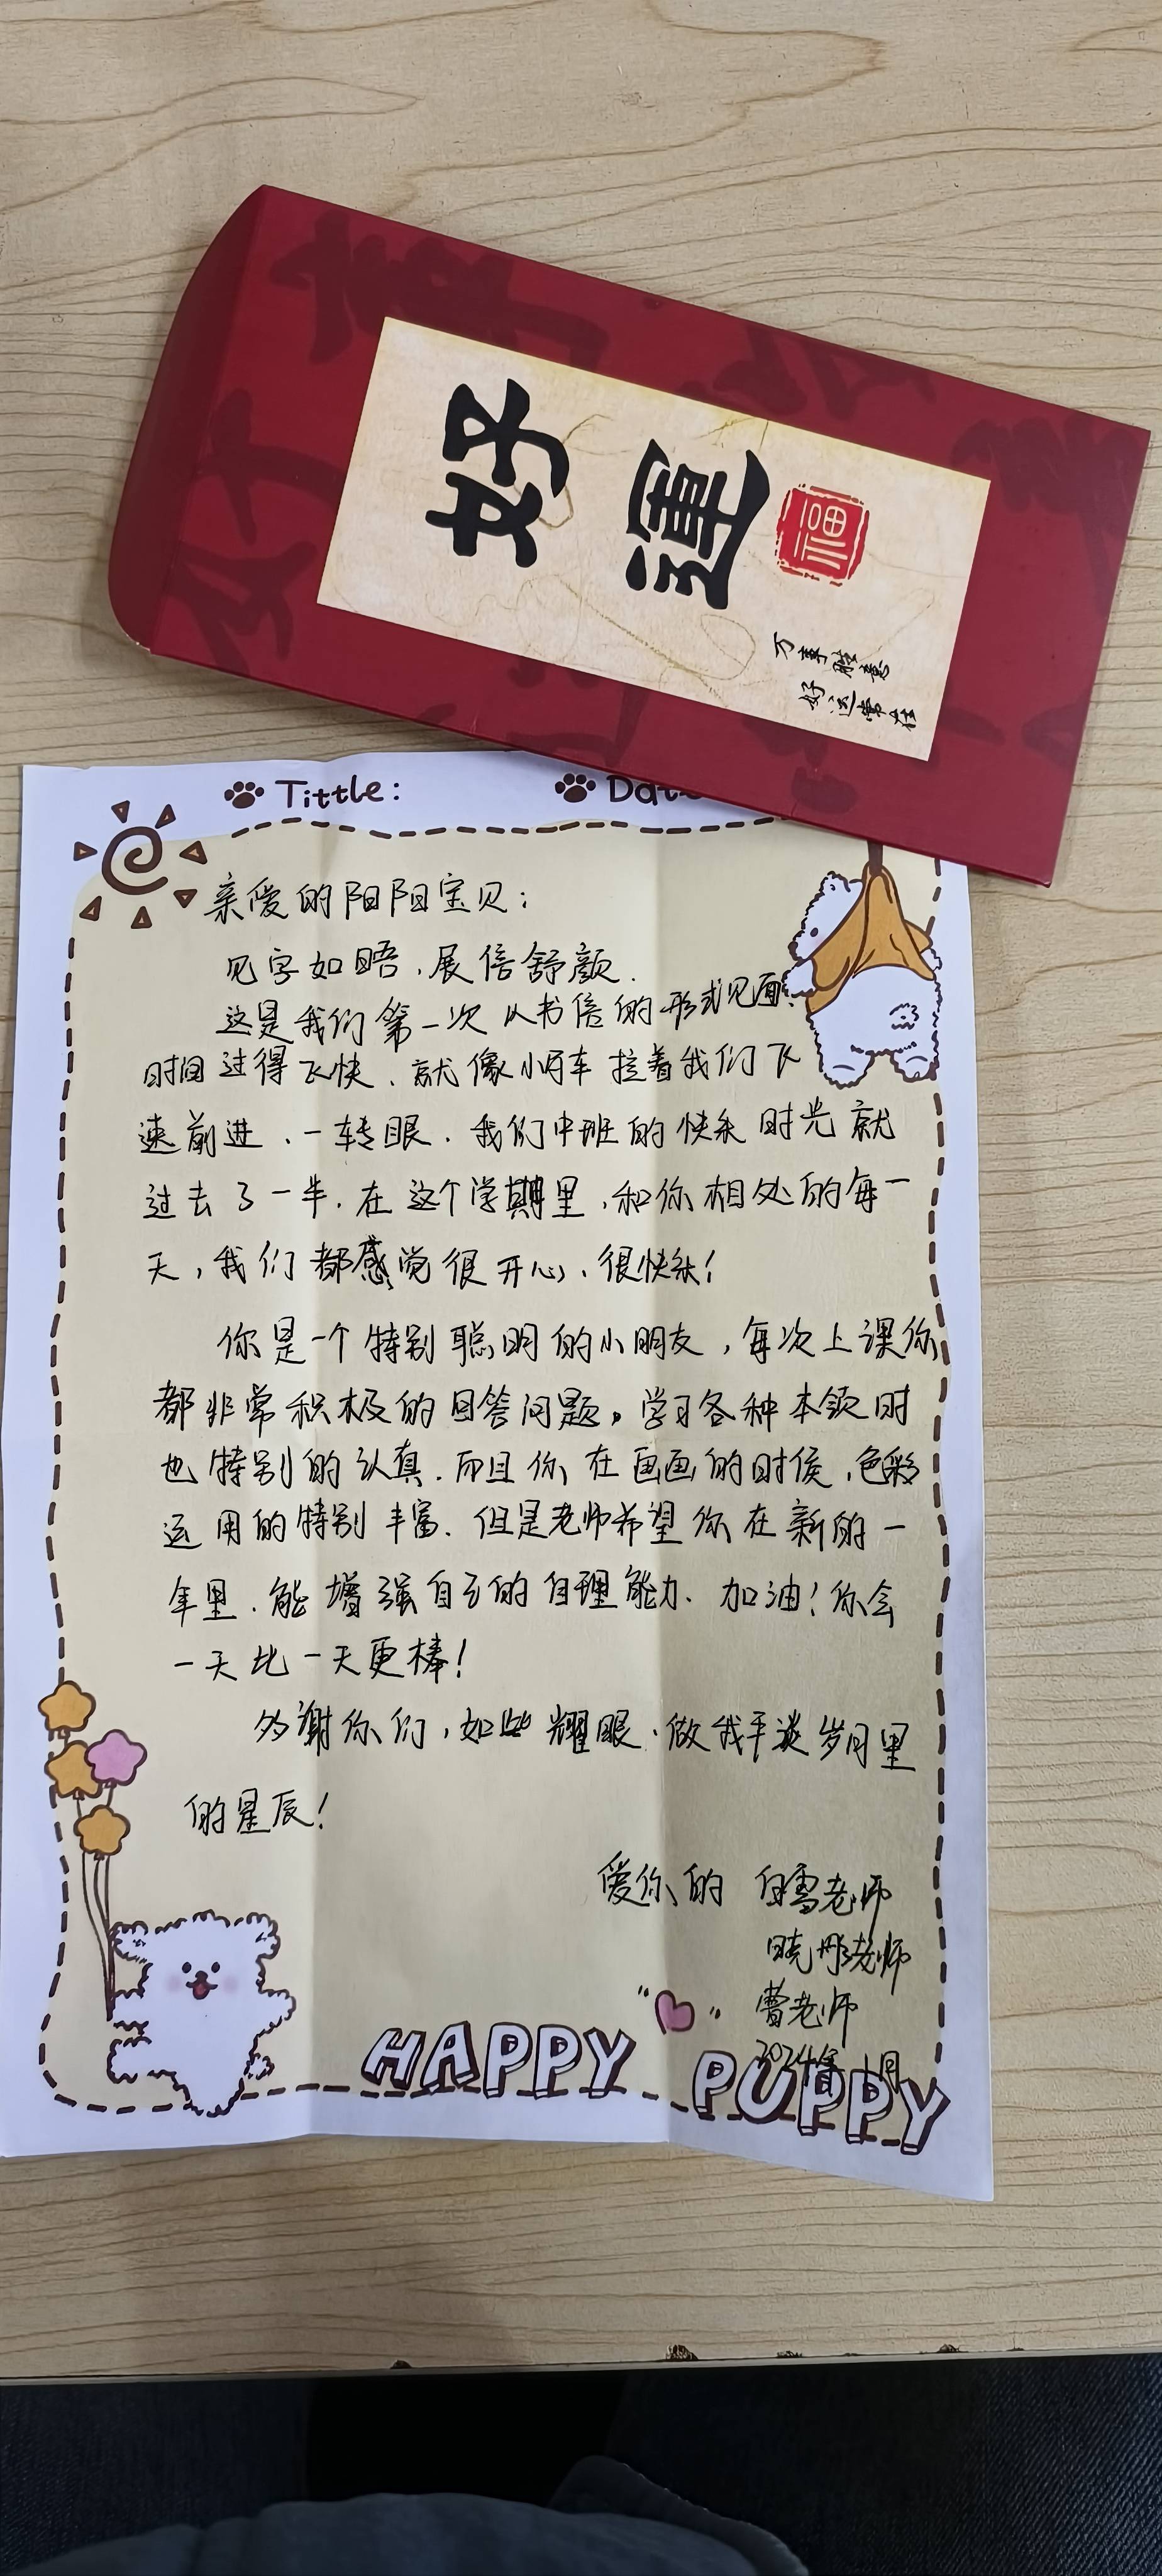 好運
福
万事胜意
好运常在
Tittle:
亲爱的阳阳宝贝:
见字如晤,展信舒颜.
这是我们第一次以书信的形式见面.
时间过得飞快、就像小马车拉着我们飞
速前进、一转眼、我们中班的快乐时光就
过去了一半.在这个学期里,和你相处的每一
天,我们都感觉很开心、很快乐!
你是一个特别聪明的小朋友,每次上课你
都非常积极的回答问题。学习各种本领时
也特别的认真.而且你在画画的时候,色彩
运用的特别丰富.但是老师希望你在新的一
年里、能增强自己的自理能力.加油!你会
一天比一天更棒!
多谢你们,如此耀眼.做我平淡岁月里
的星辰!
爱你的 白雪老师
晓彤老师
曹老师
HAPPY PUPPY